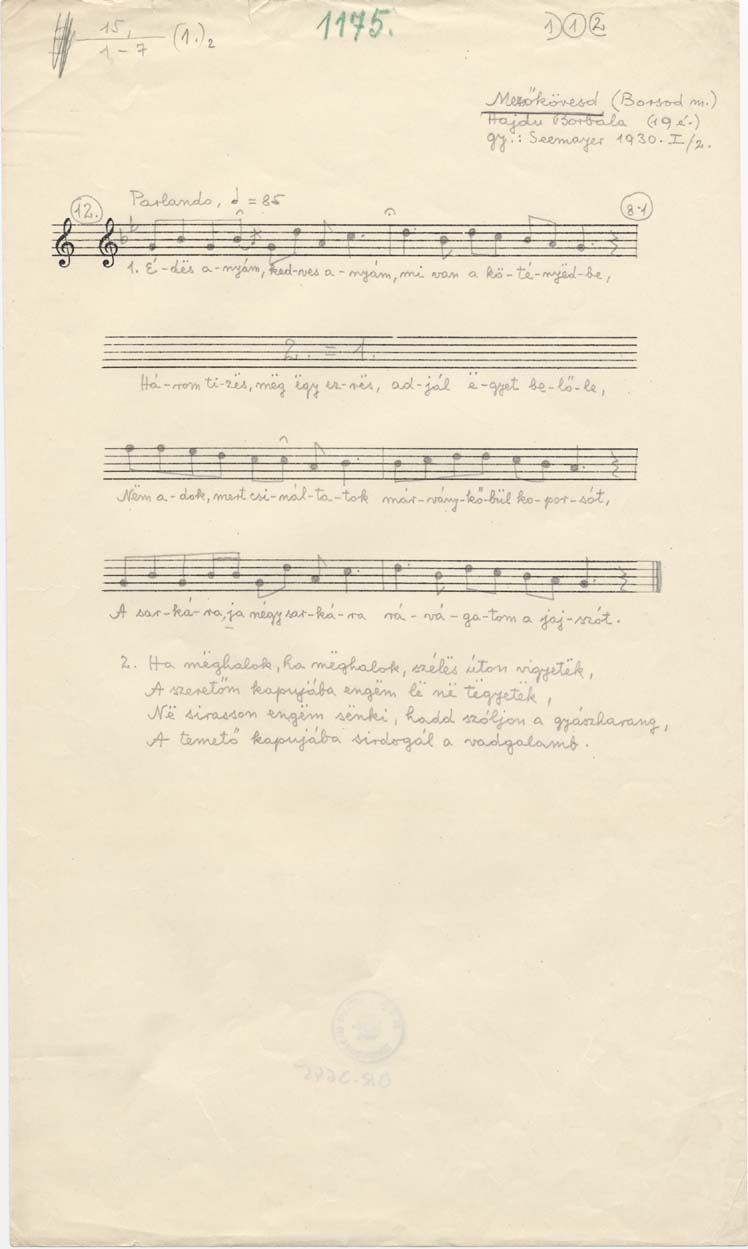 15,
1-7 (1.)2
1175.
1) 1 2
Mezőkövesd (Borsod m.)
Hajdu Borbála (19 é.)
gy.: Seemayer 1930. I/2.
12.
Parlando, = 85
8.1
1. É-dës a-nyám, ked-ves a-nyám, mi van a kö-té-nyëd-be,
2. = 1.
Há-rom ti-zës, mëg ëgy ez-rës, ad-jál ë-gyet be-lő-le,
Nëm a-dok, mert csi-nál-ta-tok már-vány-kő-bül ko-por-sót,
A sar-ká-ra, ja négy sar-ká-ra rá-vá-ga-tom a jaj-szót.
2. Ha mëghalok, ha mëghalok, szélës úton vigyetëk,
A szeretőm kapujába engëm lë në tëgyetëk,
Në sirasson engëm sënki, hadd szóljon a gyászharang,
A temető kapujába sirdogál a vadgalamb.